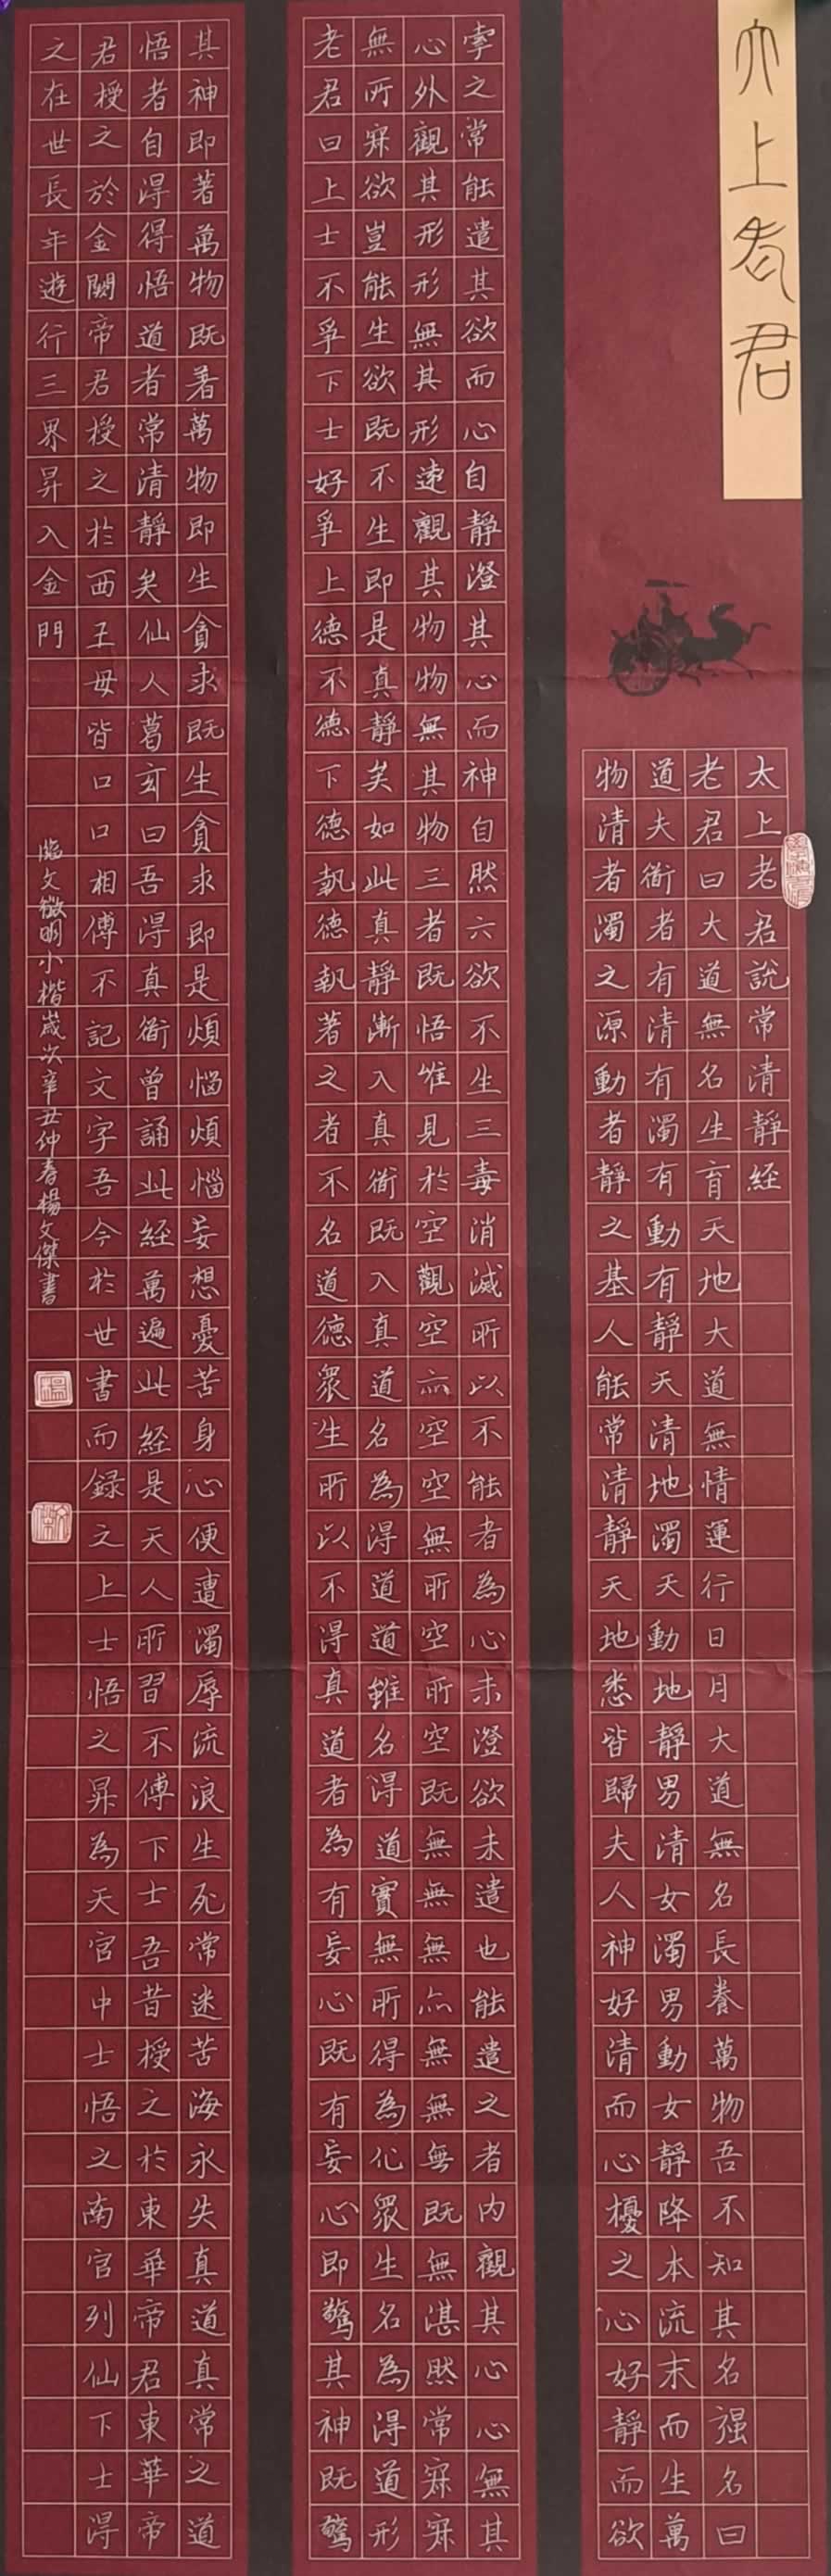 太上老君
太上老君說常清靜經
老君曰大道無名生育天地大道無情運行日月大道無名長養萬物吾不知其名强名曰
道夫衜者有清有濁有動有靜天清地濁天動地靜男清女濁男動女靜降本流末而生萬
物清者濁之源動者靜之基人能常清靜天地悉皆歸夫人神好清而心擾之心好靜而欲
牽之常能遣其欲而心自靜澄其心而神自然六欲不生三毒消滅所以不能者為心未澄欲未遣也能遣之者內觀其心心無其
心外觀其形形無其形遠觀其物物無其物三者既悟唯見於空觀空亦空空無所空所空既無無無亦無無無既無湛然常寂寂
無所寂欲豈能生欲既不生即是真靜矣如此真靜漸入真衜既入真道名為得道道雖名得道實無所得為化眾生名為得道形
老君曰上士不爭下士好爭上德不德下德執德執著之者不名道德眾生所以不得真道者為有妄心既有妄心即驚其神既驚
其神即著萬物既著萬物即生貪求既生貪求即是煩惱煩惱妄想憂苦身心便遭濁辱流浪生死常迷苦海永失真道真常之道
悟者自得得悟道者常清靜矣仙人葛玄曰吾得真衜曾誦此經萬遍此經是天人所習不傳下士吾昔授之於東華帝君東華帝
君授之於金闕帝君授之於西王母皆口口相傳不記文字吾今於世書而錄之上士悟之昇為天官中士悟之南宮列仙下士得
之在世長年遊行三界昇入金門
臨文徵明小楷歲次辛丑仲春楊文傑書